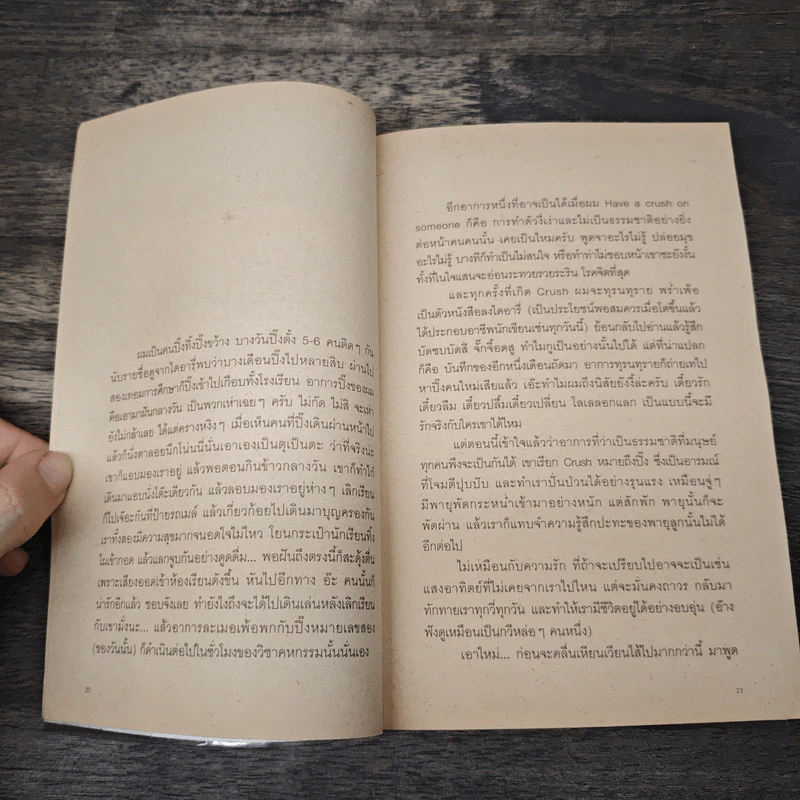 ผมเป็นคนปิ๊งทิ้งปิ๊งขว้าง บางวันปิ๊งตั้ง 5-6 คนติดๆ กัน
นับรายชื่อดูจากไดอารี่พบว่าบางเดือนปิ๊งไปหลายสิบ ผ่านไป
สองเทอมการศึกษาก็ปิ๊งเข้าไปเกือบทั้งโรงเรียน อาการปิ๊งของผม
คือเอามาฝันกลางวัน เป็นพวกเห่าเฉยๆ ครับ ไม่กัด ไม่สิ จะเห่า
ยังไม่กล้าเลย ได้แต่ครางหงิงๆ เมื่อเห็นคนที่ปิ๊งเดินผ่านหน้าไป
แล้วก็นั่งตาลอยนึกโน่นนี่นั่นเอาเองเป็นตุเป็นตะ ว่าที่จริงน่ะ
เขาก็แอบมองเราอยู่ แล้วพอตอนกินข้าวกลางวัน เขาก็ทำไก๋
เดินมาแอบนั่งโต๊ะเดียวกัน แล้วลอบมองเราอยู่ห่างๆ เลิกเรียน
ก็ไปเจอะกันที่ป้ายรถเมล์ แล้วเกี่ยวก้อยไปเดินมาบุญครองกัน
เราทั้งสองมีความสุขมากจนอดใจไม่ไหว โยนกระเป๋านักเรียนทิ้ง
โผเข้ากอด แล้วแลกจูบกันอย่างดูดดื่ม... พอฝันถึงตรงนี้ก็สะดุ้งตื่น
เพราะเสียงออดเข้าห้องเรียนดังขึ้น หันไปอีกทาง อ๊ะ คนนั้นก็
น่ารักอีกแล้ว ชอบจังเลย ทำยังไงถึงจะได้ไปเดินเล่นหลังเลิกเรียน
กับเขามั่งนะ... แล้วอาการละเมอเพ้อพกกับปิ๊งหมายเลขสอง
(ของวันนั้น) ก็ดำเนินต่อไปในชั่วโมงของวิชาคหกรรมนั้นนั่นเอง
20
อีกอาการหนึ่งที่อาจเป็นได้เมื่อผม Have a crush on
someone ก็คือ การทำตัววี่งเง่าและไม่เป็นธรรมชาติอย่างยิ่ง
ต่อหน้าคนคนนั้น เคยเป็นไหมครับ พูดจาอะไรไม่รู้ ปล่อยมุข
อะไรไม่รู้ บางทีก็ทำเป็นไม่สนใจ หรือทำท่าไม่ชอบหน้าเขาซะยังงั้น
ทั้งที่ในใจแสนจะอ่อนระทวยรวยระริน โรคจิตที่สุด
และทุกครั้งที่เกิด Crush ผมจะทุรนทุราย พร่ำเพ้อ
เป็นตัวหนังสือลงไดอารี่ (เป็นประโยชน์พอสมควรเมื่อโตขึ้นแล้ว
ได้ประกอบอาชีพนักเขียนเช่นทุกวันนี้) ย้อนกลับไปอ่านแล้วรู้สึก
บัดซบบัดสี จั๊กจี้อดสู ทำไมกูเป็นอย่างนั้นไปได้ แต่ที่น่าแปลก
ก็คือ บันทึกของอีกหนึ่งเดือนถัดมา อาการทุรนทุรายก็ถ่ายเทไป
หาปิ๊งคนใหม่เสียแล้ว เอ๊ะทำไมผมถึงนิสัยยังงี้ล่ะครับ เดี๋ยวรัก
เดี๋ยวลืม เดี๋ยวปลื้มเดี๋ยวเปลี่ยน โลเลลอกแลก เป็นแบบนี้จะมี
รักจริงกับใครเขาได้ไหม
แต่ตอนนี้เข้าใจแล้วว่าอาการที่ว่าเป็นธรรมชาติที่มนุษย์
ทุกคนพึงจะเป็นกันได้ เขาเรียก Crush หมายถึงปิ๊ง ซึ่งเป็นอารมณ์
ที่โจมตีปุบปับ และทำเราปั่นป่วนได้อย่างรุนแรง เหมือนจู่ๆ
มีพายุพัดกระหน่ำเข้ามาอย่างหนัก แต่สักพัก พายุนั้นก็จะ
พัดผ่าน แล้วเราก็แทบจำความรู้สึกปะทะของพายุลูกนั้นไม่ได้
อีกต่อไป
ไม่เหมือนกับความรัก ที่ถ้าจะเปรียบไปอาจจะเป็นเช่น
แสงอาทิตย์ที่ไม่เคยจากเราไปไหน แต่จะมั่นคงถาวร กลับมา
ทักทายเราทุกวี่ทุกวัน และทำให้เรามีชีวิตอยู่ได้อย่างอบอุ่น (อ้าง
ฟังดูเหมือนเป็นกวีหล่อๆ คนหนึ่ง)
เอาใหม่... ก่อนจะคลื่นเหียนเวียนไส้ไปมากกว่านี้ มาพูด
21